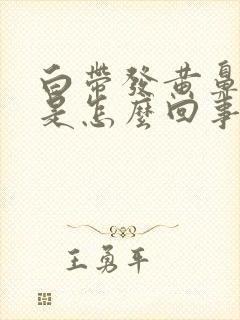 白帶發黃鼻
是怎麼回事
王勇平